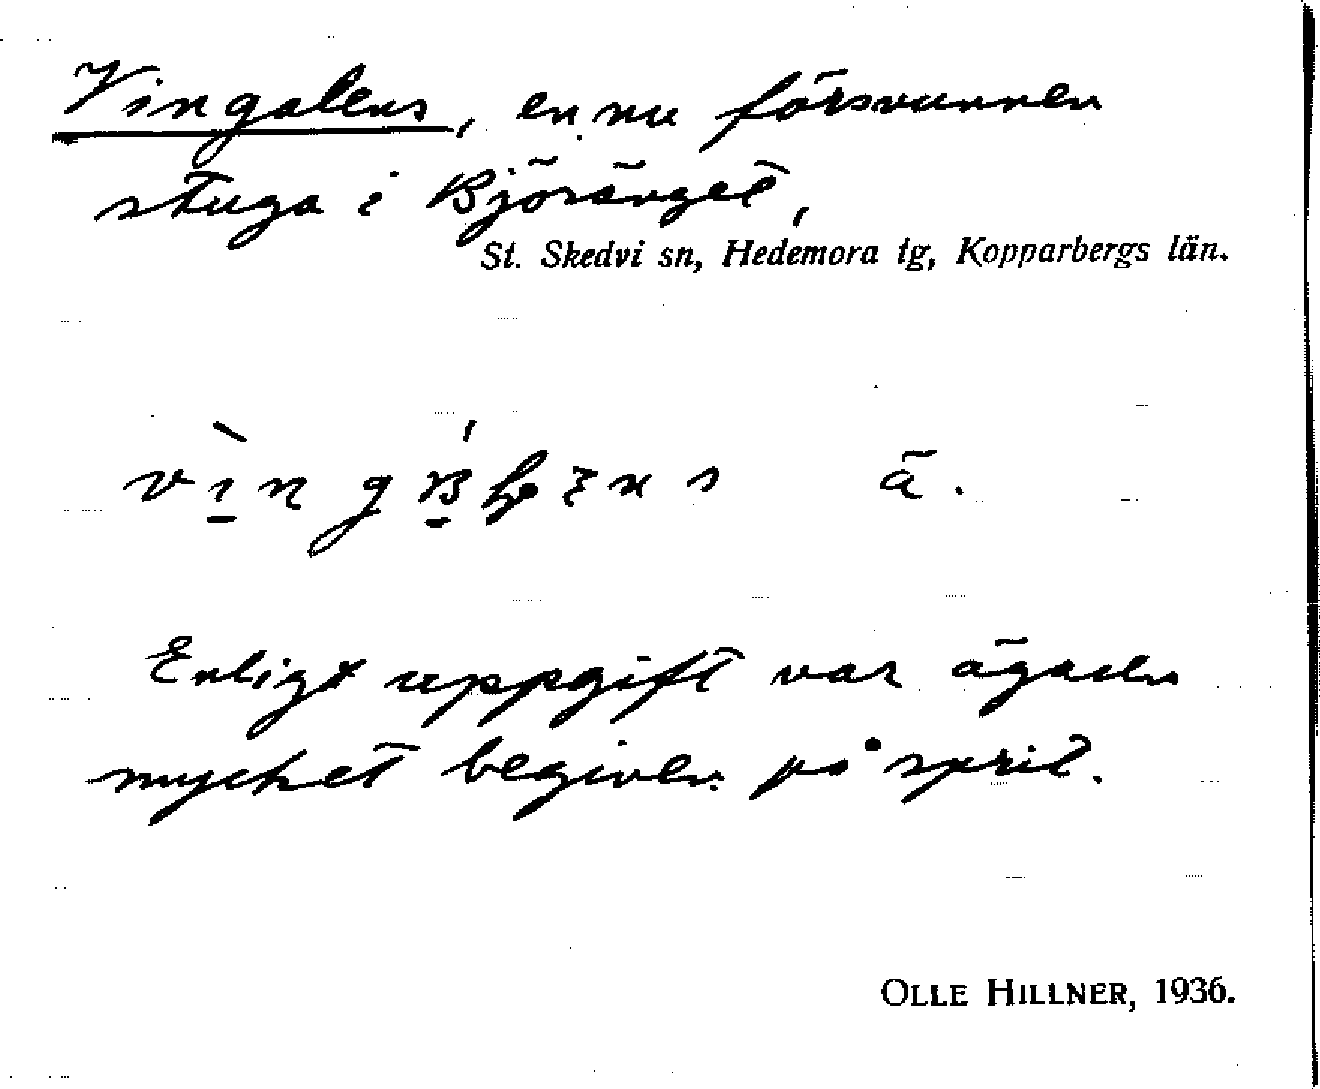 Vingalens, en nu försvunnen
stuga i Björänget,
St. Skedvi sn, Hedemora tg, Kopparbergs län.
ä.
Enligt uppgift var ägaren
mycket begiven på sprit.
OLLE HILLNER, 1936.